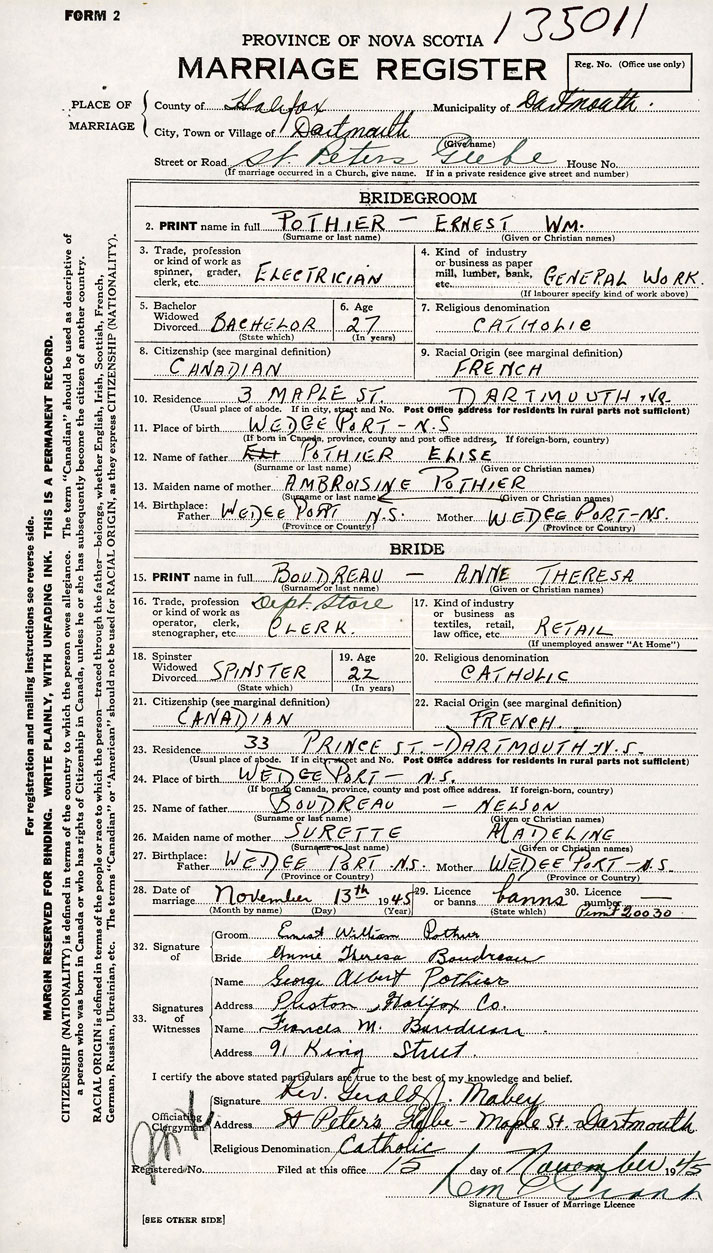 FORM 2
135011
PROVINCE OF NOVA SCOTIA
MARRIAGE REGISTER
Reg. No. (Office use only)
PLACE OF MARRIAGE
County of Halifax Municipality of Dartmouth.
City, Town or Village of Dartmouth
(Give name)
Street or Road St Peters Glebe House No.
(If marriage occurred in a Church, give name. If in a private residence give street and number)
BRIDEGROOM
2. PRINT name in full POTHIER — ERNEST WM.
(Surname or last name) (Given or Christian names)
3. Trade, profession or kind of work as spinner, grader, clerk, etc. ELECTRICIAN
4. Kind of industry or business as paper mill, lumber, bank, etc. GENERAL WORK.
(If labourer specify kind of work above)
5. Bachelor Widowed Divorced BACHELOR
(State which)
6. Age 27
(In years)
7. Religious denomination
CATHOLIC
8. Citizenship (see marginal definition)
CANADIAN
9. Racial Origin (see marginal definition)
FRENCH
10. Residence 3 MAPLE ST. DARTMOUTH N.S.
(Usual place of abode. If in city, street and No. Post Office address for residents in rural parts not sufficient)
11. Place of birth WEDGE PORT - N.S
(If born in Canada, province, county and post office address, If foreign-born, country)
12. Name of father POTHIER ELISE
(Surname or last name) (Given or Christian names)
13. Maiden name of mother AMBROISINE POTHIER
(Surname or last name) (Given or Christian names)
14. Birthplace: Father WEDGE PORT N.S. Mother WEDGE PORT - NS.
(Province or Country) (Province or Country)
BRIDE
15. PRINT name in full BOUDREAU — ANNE THERESA
(Surname or last name) (Given or Christian names)
16. Trade, profession or kind of work as operator, clerk, stenographer, etc. Dept. Store CLERK.
17. Kind of industry or business as textiles, retail, law office, etc. RETAIL
(If unemployed answer "At Home")
18. Spinster Widowed Divorced SPINSTER
(State which)
19. Age 22
(In years)
20. Religious denomination
CATHOLIC
21. Citizenship (see marginal definition)
CANADIAN
22. Racial Origin (see marginal definition)
FRENCH.
23. Residence 33 PRINCE ST. - DARTMOUTH N.S.
(Usual place of abode. If in city, street and No. Post Office address for residents in rural parts not sufficient)
24. Place of birth WEDGE PORT - N.S.
(If born in Canada, province, county and post office address. If foreign-born, country)
25. Name of father BOUDREAU - NELSON
(Surname or last name) (Given or Christian names)
26. Maiden name of mother SURETTE MADELINE
(Surname or last name) (Given or Christian names)
27. Birthplace: Father WEDGE PORT NS. Mother WEDGE PORT - N.S.
(Province or Country) (Province or Country)
28. Date of marriage November 13th 1945
(Month by name) (Day) (Year)
29. Licence or banns banns
(State which)
30. Licence number —
Permit 20030
32. Signature of
Groom Ernest William Pothier
Bride Annie Theresa Boudreau
33. Signatures of Witnesses
Name George Albert Pothier
Address Preston, Halifax Co.
Name Frances M. Boudreau.
Address 91 King Street.
I certify the above stated particulars are true to the best of my knowledge and belief.
Officiating Clergyman
Signature Rev. Gerald J. Mabey
Address St Peter's Glebe - Maple St. Dartmouth
Religious Denomination Catholic
Registered No. Filed at this office 15 day of November 1945
Signature of Issuer of Marriage Licence
[SEE OTHER SIDE]
For registration and mailing instructions see reverse side.
MARGIN RESERVED FOR BINDING. WRITE PLAINLY, WITH UNFADING INK. THIS IS A PERMANENT RECORD.
CITIZENSHIP (NATIONALITY) is defined in terms of the country to which the person owes allegiance. The term "Canadian" should be used as descriptive of
a person who was born in Canada or who has rights of Citizenship in Canada, unless he or she has subsequently become the citizen of another country.
RACIAL ORIGIN is defined in terms of the people or race to which the person—traced through the father—belongs, whether English, Irish, Scottish, French,
German, Russian, Ukrainian, etc. The terms "Canadian" or "American" should not be used for RACIAL ORIGIN, as they express CITIZENSHIP (NATIONALITY).